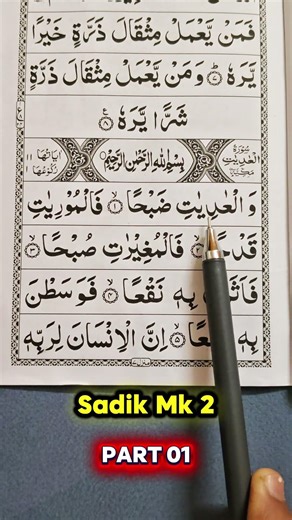 فَمَنْ يَّعْمَلْ مِثْقَالَ ذَرَّةٍ خَيْرًا
يَّرَهٗ ۝٧ وَمَنْ يَّعْمَلْ مِثْقَالَ ذَرَّةٍ
شَرًّا يَّرَهٗ ۝٨
سُوْرَةُ الْعٰدِيٰتِ مَكِّيَّةٌ بِسْمِ اللّٰهِ الرَّحْمٰنِ الرَّحِيْمِ اٰيَاتُهَا ١١
وَ الْعٰدِيٰتِ ضَبْحًا ۝١ فَالْمُوْرِيٰتِ
قَدْحًا فَالْمُغِيْرٰتِ صُبْحًا ۝٣
بِهٖ نَقْعًا ۝٤ فَوَسَطْنَ
بِهٖ ۝٥ اِنَّ الْاِنْسَانَ لِرَبِّهٖ
Sadik Mk 2
PART 01